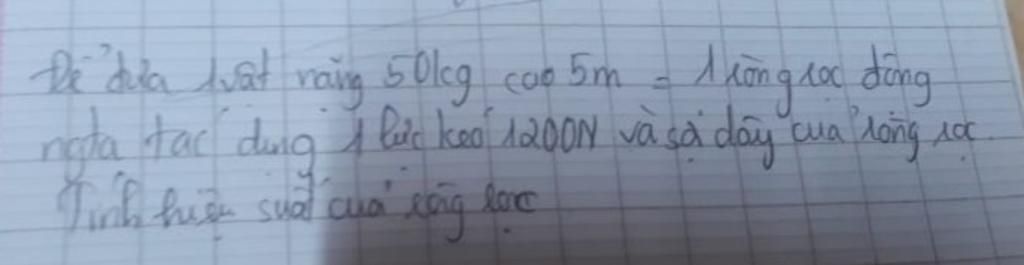 Để đưa 1 vật nặng 50kg cao 5m = 1 ròng rọc động
ngta tác dụng 1 lực kéo 1200N và sợi dây của ròng rọc.
Tính hiệu suất của ròng rọc